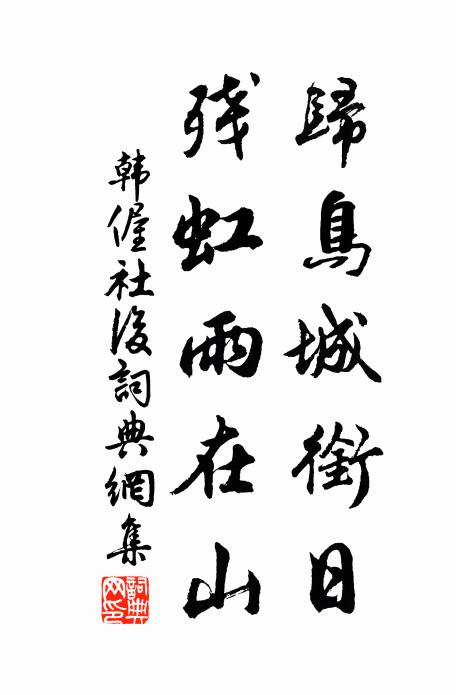 歸鳥城銜日
残虹雨在山
韩偓社後詞典網集
詞典网印